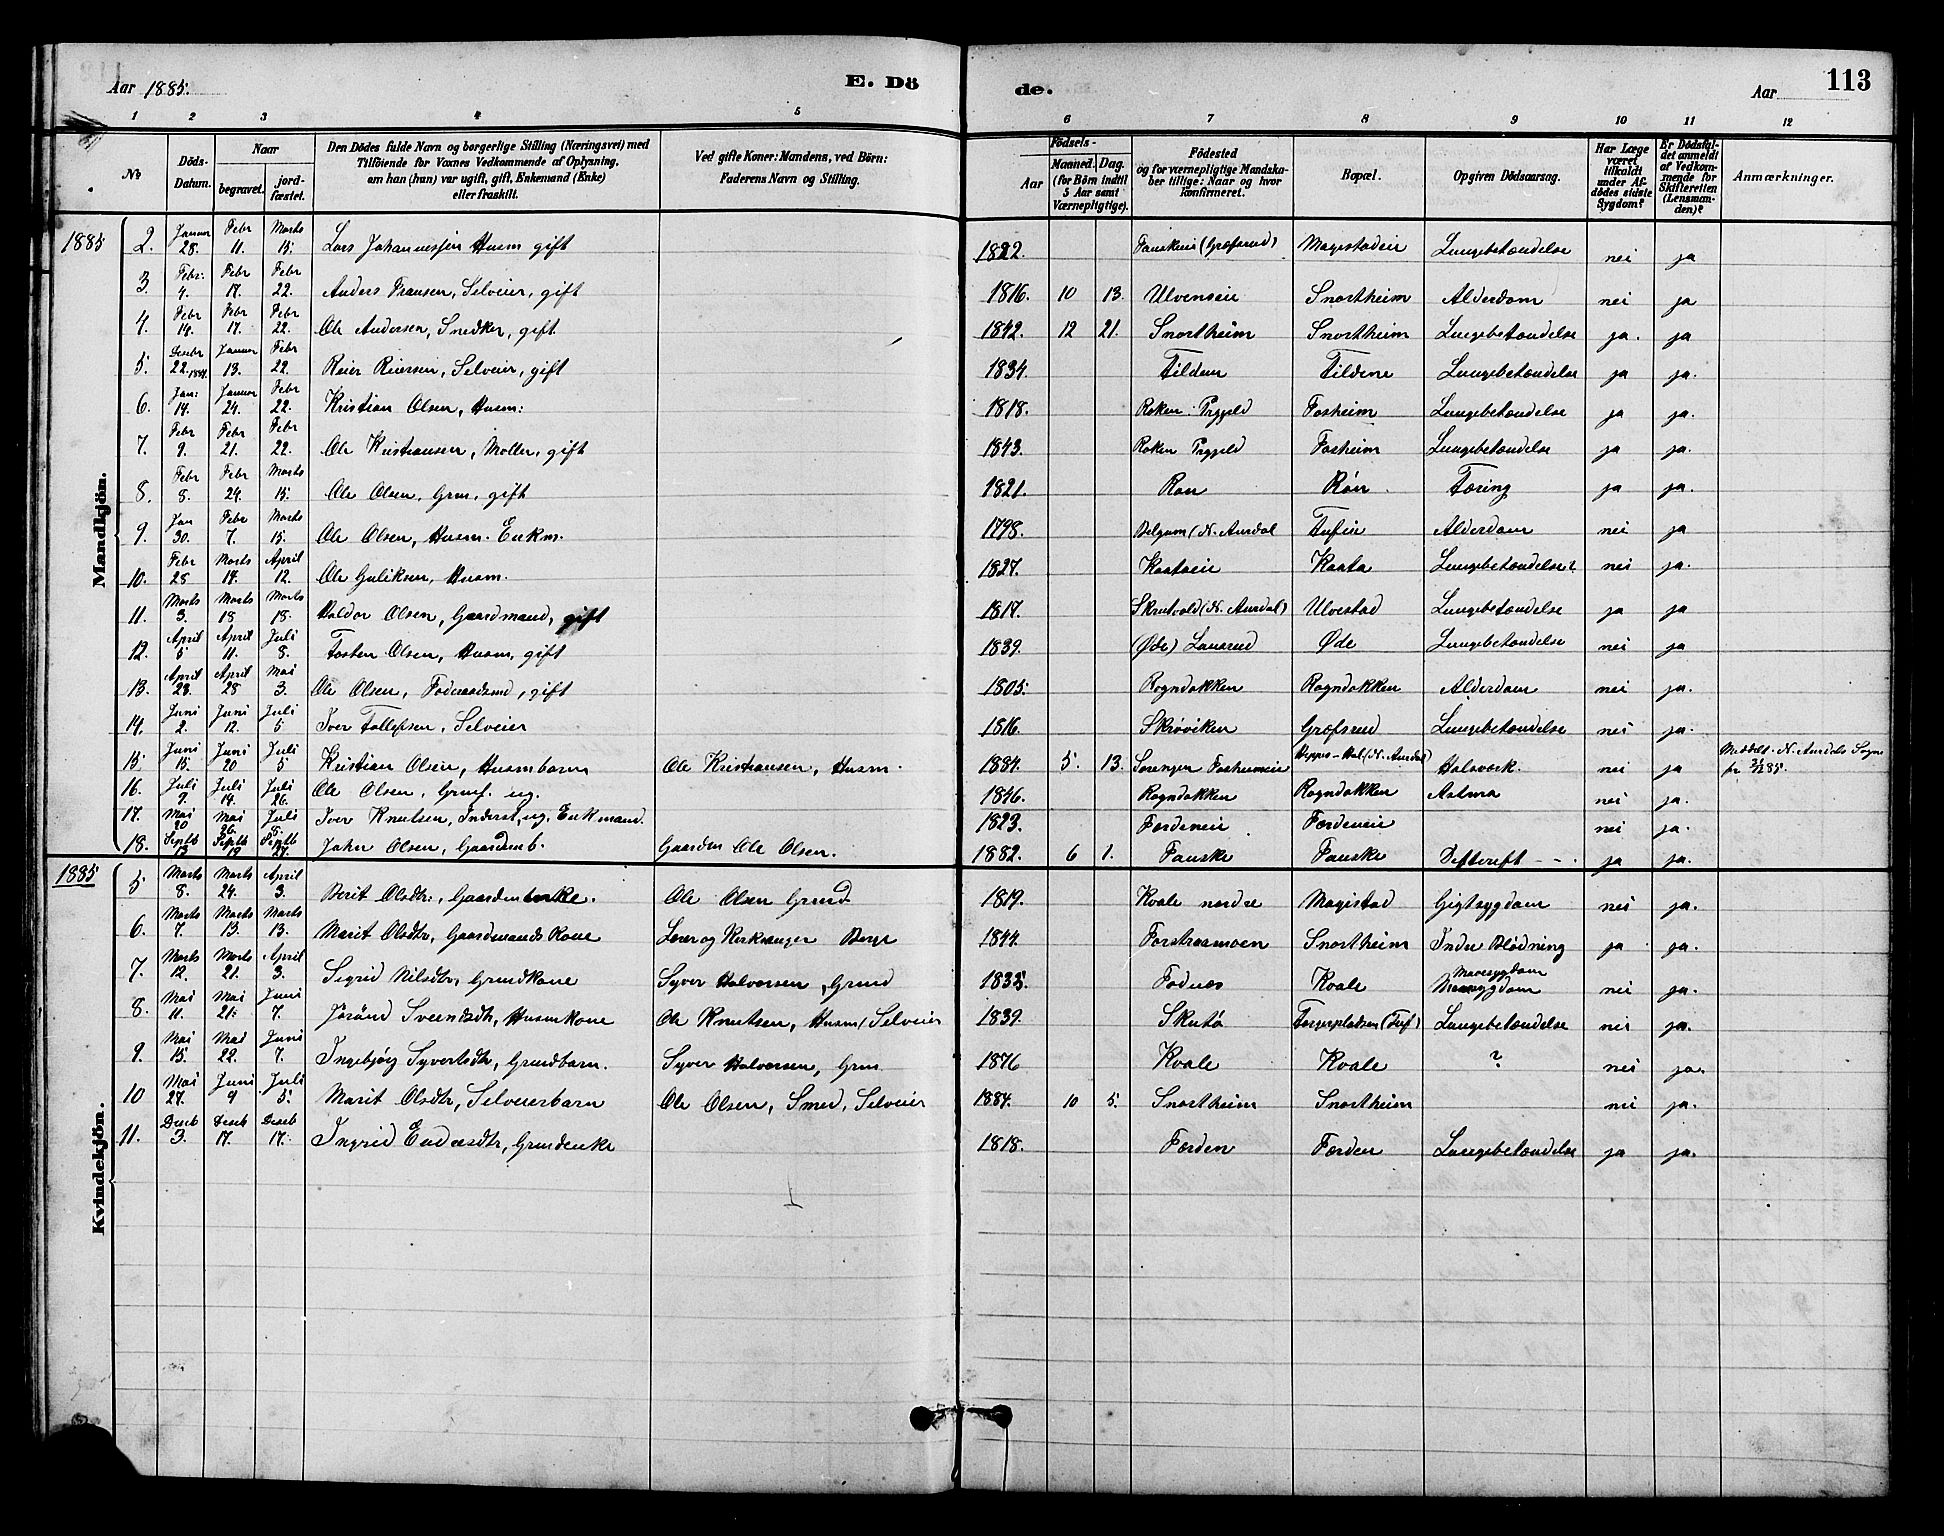 Aar 1885.
E. Døde.
Aar
113
1 2 3 4 5 6 7 8 9 10 11 12
No
Döds-Datum.
Naar
begravet.
jordfæstet.
Den Dödes fulde Navn og borgerlige Stilling (Næringsvei) med Tilföiende for Voxnes Vedkommende af Oplysning, om han (hun) var ugift, gift, Enkemand (Enke) eller fraskilt.
Ved gifte Koner: Mandens, ved Börn: Faderens Navn og Stilling.
Födsels-
Aar
Maaned. Dag.
(for Börn indtil 5 Aar samt Værnepligtige).
Födested og for værnepligtige Mandskaber tillige: Naar og hvor konfirmeret.
Bopæl.
Opgiven Dödsaarsag.
Har Læge været tilkaldt under Afdödes sidste Sygdom?
Er Dödsfaldet anmeldt af Vedkommende for Skifteretten (Lensmanden)?
Anmærkninger.
Mandkjön.
1885 2. Januar 28. Febr 11. Marts 15. Lars Johannessen Husm gift 1822. Fauskeie (Græfsrud) Magistadeie Lungebetændelse nei ja
3. Febr: 4. Febr 17. Febr 22. Anders Fransen, Selveier, gift 1816. 10 13. Ulvenseie Snortheim Alderdom nei ja
4. Febr 14. Febr 17. Febr 22. Ole Andersen, Snedker, gift 1842. 12 21. Snortheim Snortheim Lungebetændelse ja. ja
5. Desebr 22. 1884. Januar 13. Febr 22. Reier Reiersen, Selveier, gift 1834. Tildem Tildene Lungebetændelse ja ja.
6. Jan: 14. Januar 24. Febr 22. Kristian Olsen, Husm: 1818. Roken Prgjeld Fosheim Lungebetændelse ja ja.
7. Febr 9. Febr 21. Febr 22. Ole Kristiansen, Møller, gift 1843. Roken Prgjeld Fosheim Lungebetændelse ja ja.
8. Febr 8. Febr 24. Marts 15. Ole Olsen, Grm, gift 1821. Røn Røn Tæring ja ja.
9. Jan 30. Febr 7. Marts 15. Ole Olsen, Husm. Enkm. 1798. (N. Aurdal Tufeie Alderdom nei ja
10. Febr 28 Marts 14. April 12. Ole Guliksen, Husm. 1827. Kaataeie Kaata Lungebetændelse? nei ja.
11. Marts 3. Marts 18 Marts 18. Haldor Olsen, Gaardmand, gift 1817. Skrutvold (N. Aurdal) Ulvestad Lungebetændelse ja ja
12. April 5 April 11. Juli 8. Tosten Olsen, Husm, gift 1839. (Øde) Lausrud Øde Lungebetændelse nei ja
13. April 23. April 28 Mai 3. Ole Olsen, Føderaadsmd, gift 1805. Rogndokken Rogndokken Alderdom nei ja.
14. Juni 2. Juni 12. Juli 5 Iver Tollefsen, Selveier 1816. Skrøviken Græfsrud Lungebetændelse nei ja.
15. Juni 15. Juni 20 Juli 5 Kristian Olsen, Husmbarn Ole Kristiansen, Husm. 1884. 5. 13. Sørengen Fosheimeie (N. Aurdal) Halsværk. nei ja Meddelt N. Aurdals Sogn
16. Juli 9. Juli 14. Juli 26. Ole Olsen, ug. 1846. Rogndokken Rogndokken Astma nei ja.
17. Mai 20 Mai 26. Juli 5. Iver Knutsen, Inderst, ug, Enkmand. 1823. Færdeneie Færdeneie nei ja.
18. Septb 13 Septb 19 Septb 27. John Olsen, Gaardmb. Gaardm Ole Olsen. 1882. 6 1. Fauske Fauske Difterift - - ja ja.
Kvindekjön.
1885 5 Marts 8. Marts 24. April 3. Berit Olsdtr:, Gaardmenke. Ole Olsen Grmd 1819. Kvale nordre Magistad Gigtsygdom nei ja.
6. Marts 7. Marts 13. Marts 13. Marit Olsdtr, Gaardmands Kone Lærer og Kirkesanger Berge 1844. Snortheim Indre Blødning ja ja.
7. Marts 12. Marts 21. April 3. Sigrid Nilsdtr, Grmdkone Syver Halvorsen, Grmd 1835. Fodnæs Kvale Mavesygdom nei ja.
8. Mai 11. Mai 21. Juni 7. Jørånd Svendsdtr, Husmkone Ole Knutsen, Husm/Selveier 1839. Skutø (Tuf) Lungebetændelse nei ja.
9. Mai 15. Mai 22. Juni 7. Ingebjørg Syvertsdtr, Grmdbarn. Syver Halvorsen, Grm. 1876 Kvale Kvale ? nei ja.
10 Mai 27. Juni 9 Juli 5. Marit Olsdtr, Selveierbarn Ole Olsen, Smed, Selveier 1884. 10 5. Snortheim Snortheim nei ja.
11. Deseb 3. Deseb 17. Deseb 17. Ingrid Endresdtr, Grmdenke 1818. Færden Færden Lungebetændelse ja ja.